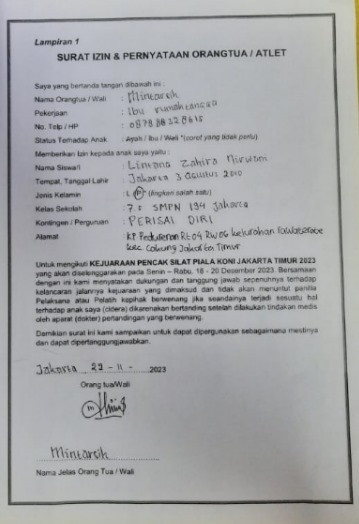 Lampiran 1
SURAT IZIN & PERNYATAAN ORANGTUA / ATLET
Saya yang bertanda tangan dibawah ini :
Nama Orangtua / Wali : Mintarsih
Pekerjaan : Ibu rumahtangga
No. Telp / HP : 087888328615
Status Terhadap Anak : Ayah / Ibu / Wali *(coret yang tidak perlu)
Memberikan Izin kepada anak saya yaitu :
Nama Siswa/i : Lintang Zahira
Tempat, Tanggal Lahir : Jakarta 3 Agustus 2010
Jenis Kelamin : L / P (lingkari salah satu)
Kelas Sekolah : 7.5 SMPN 194 Jakarta
Kontingen / Perguruan : PERISAI DIRI
Alamat : KP Pedurenan Rt 09 RW 06 kelurahan
kec Cakung Jakarta Timur
Untuk mengikuti KEJUARAAN PENCAK SILAT PIALA KONI JAKARTA TIMUR 2023
yang akan diselenggarakan pada Senin – Rabu, 18 - 20 Desember 2023. Bersamaan
dengan ini kami menyatakan dukungan dan tanggung jawab sepenuhnya terhadap
kelancaran jalannya kejuaraan yang dimaksud dan tidak akan menuntut panitia
Pelaksana atau Pelatih kepihak berwenang jika seandainya terjadi sesuatu hal
terhadap anak saya (cidera) dikarenakan bertanding setelah dilakukan tindakan medis
oleh aparat (dokter) pertandingan yang berwenang.
Demikian surat ini kami sampaikan untuk dapat dipergunakan sebagaimana mestinya
dan dapat dipertanggungjawabkan.
Jakarta 29 - 11 - 2023
Orang tua/Wali
Mintarsih
Nama Jelas Orang Tua / Wali